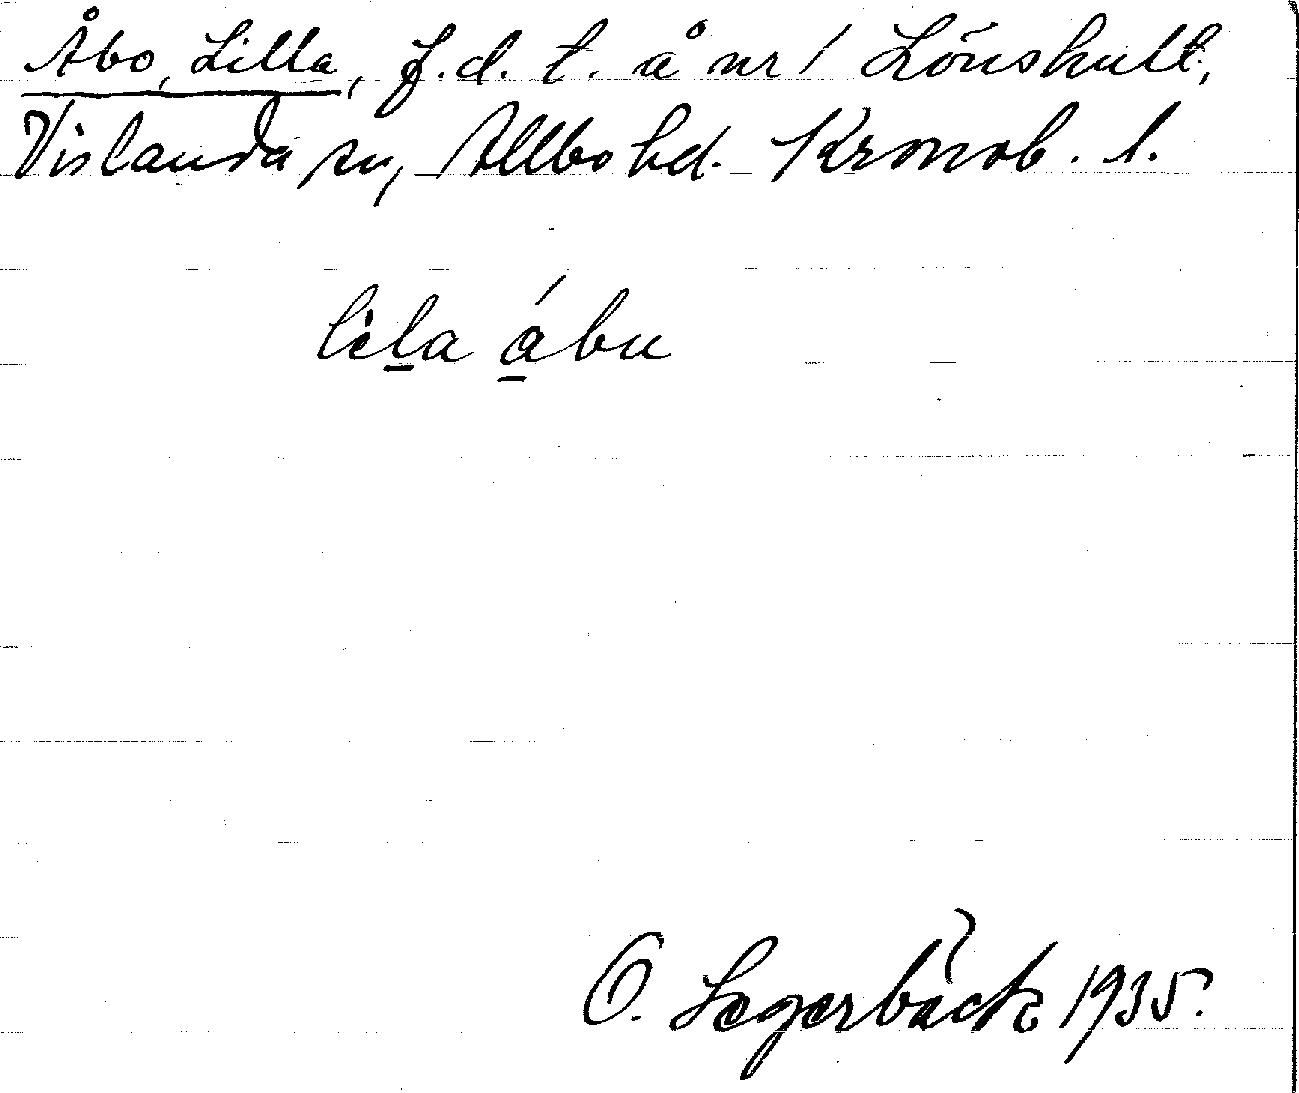 Åbo, Lilla, f.d. t. å nr 1 Lönshult,
Vislanda sn, Allbo hd. Kronob. l.
lila ábu
O. Segerbäck 1935.